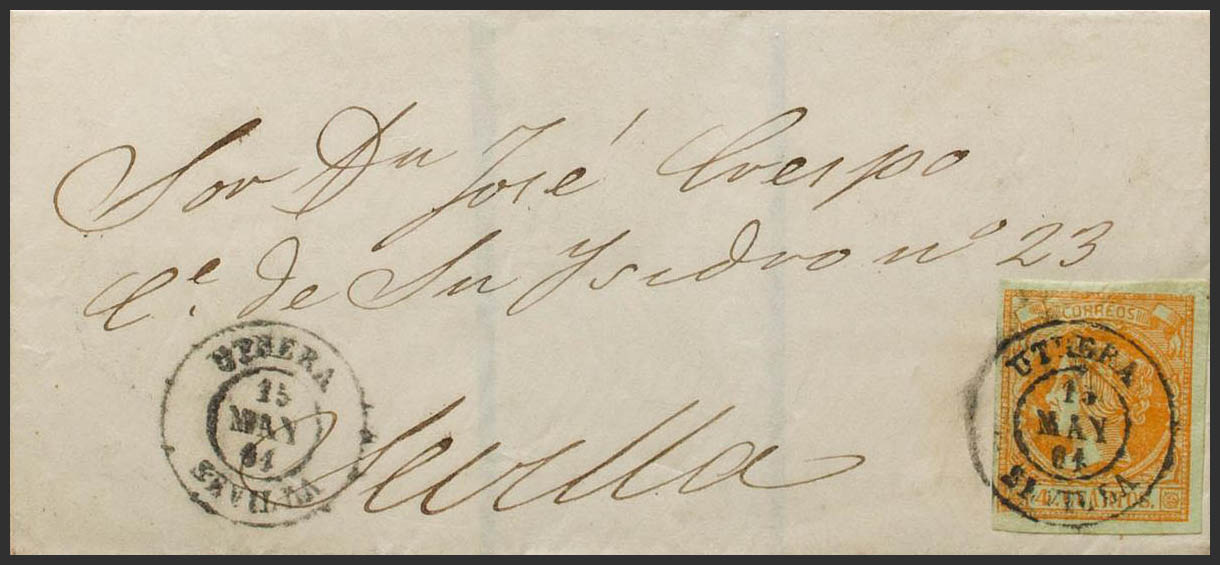 Sor Dn José Crespo
Ce. de Sn Ysidro nº 23
Sevilla
UTRERA
15
MAY
61
SEVILLA
CORREOS
UTRERA
15
MAY
61
SEVILLA